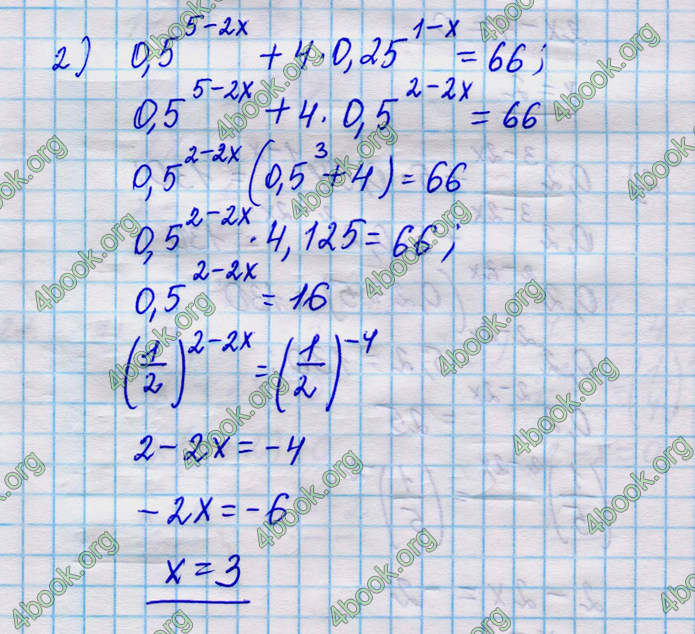 2) 0,5^(5-2x) + 4·0,25^(1-x) = 66;
0,5^(5-2x) + 4·0,5^(2-2x) = 66
0,5^(2-2x) (0,5^3 + 4) = 66
0,5^(2-2x) · 4,125 = 66;
0,5^(2-2x) = 16
(1/2)^(2-2x) = (1/2)^(-4)
2 - 2x = -4
-2x = -6
x = 3
4book.org